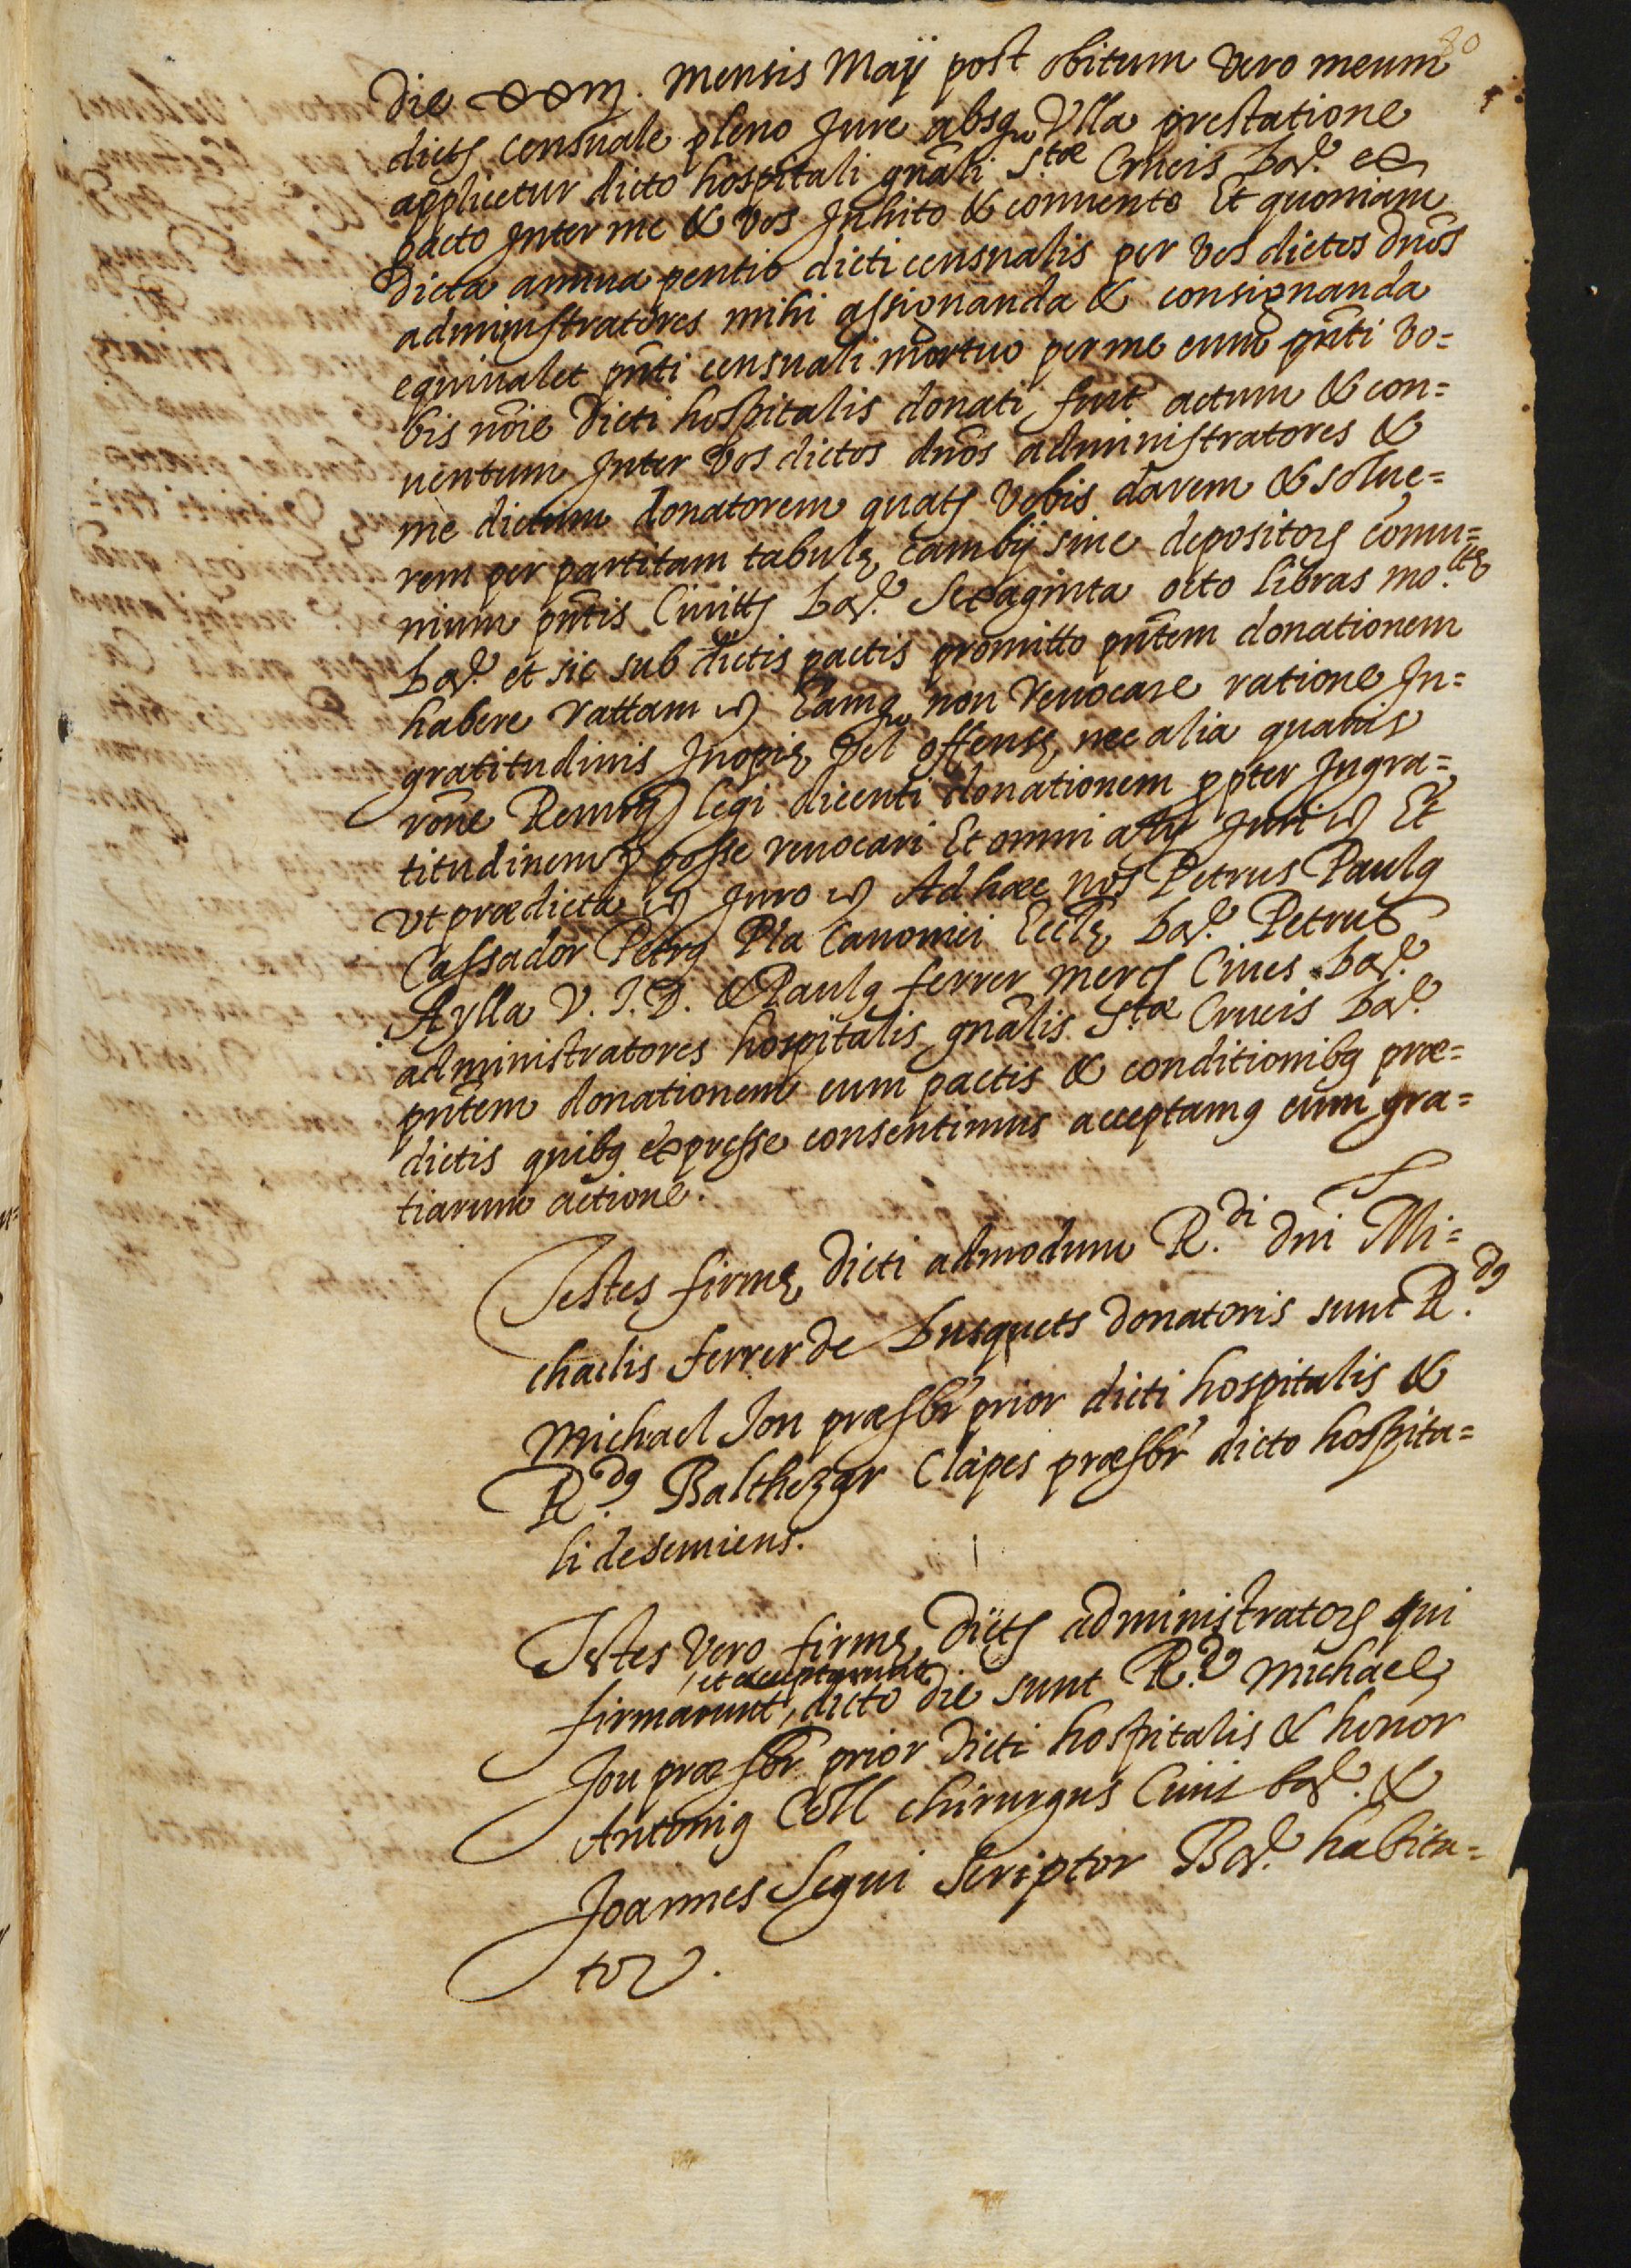 80
die xxiij. mensis Maij post obitum vero meum
dictum censuale pleno Jure absque Ulla prestatione
applicetur dicto hospitali gñali S.tæ Crucis bar.e ex
pacto Inter me & vos Inhito & convento Et quoniam
dicta annua pentio dicti censualis per vos dictos dños
administratores mihi assignanda & consignanda
equivalet pñti censuali mortuo per me cum pñti vo=
bis nõie dicti hospitalis donati, fuit actum & con=
uentum Inter vos dictos dños administratores &
me dictum donatorem quatenus vobis darem & solue=
rem per partitam tabulę cambij siue depositorum comu=
nium pñtis Ciuittis bar.e Sexaginta octo libras mo.tę
bar.e et sic sub dictis pactis promitto pñtem donationem
habere rattam etc Eamque non revocare ratione In=
gratitudinis Inopię vel offensę, nec alia quauis
rõne Renuntians legi dicenti donationem ppter Ingra=
titudinem posse reuocari Et omni alij Juri etc Et
ut prædicta etc Juro etc Ad hæc nos Petrus Paulus
Cassador Petrus Pla Canonici Eccłę bar.e Petrus
Aylla V. J. D. & Paulus ferrer merc.r Ciues bar.e
administratores hospitalis gñalis S.tæ Crucis bar.e
pñtem donationem cum pactis & conditionibus præ=
dictis quibus expresse consentimus acceptamus cum gra=
tiarum actione.
Testes firmę dicti admodum R.di dñi Mi=
chaelis ferrer de busquets donatoris sunt R.dus
Michael Jou præsbr prior dicti hospitalis &
R.dus Balthezar Clapes præsbr dicto hospita=
li deseruiens.
Testes vero firmę dictorum administratorum qui
firmarunt, et acceptarunt dicto die sunt R.d Michael
Jou præsbr prior dicti hospitalis & honor
Antonius Coll chirurgus Ciuis bar.e &
Joannes Segui Scriptor Bar.e habita=
tor.